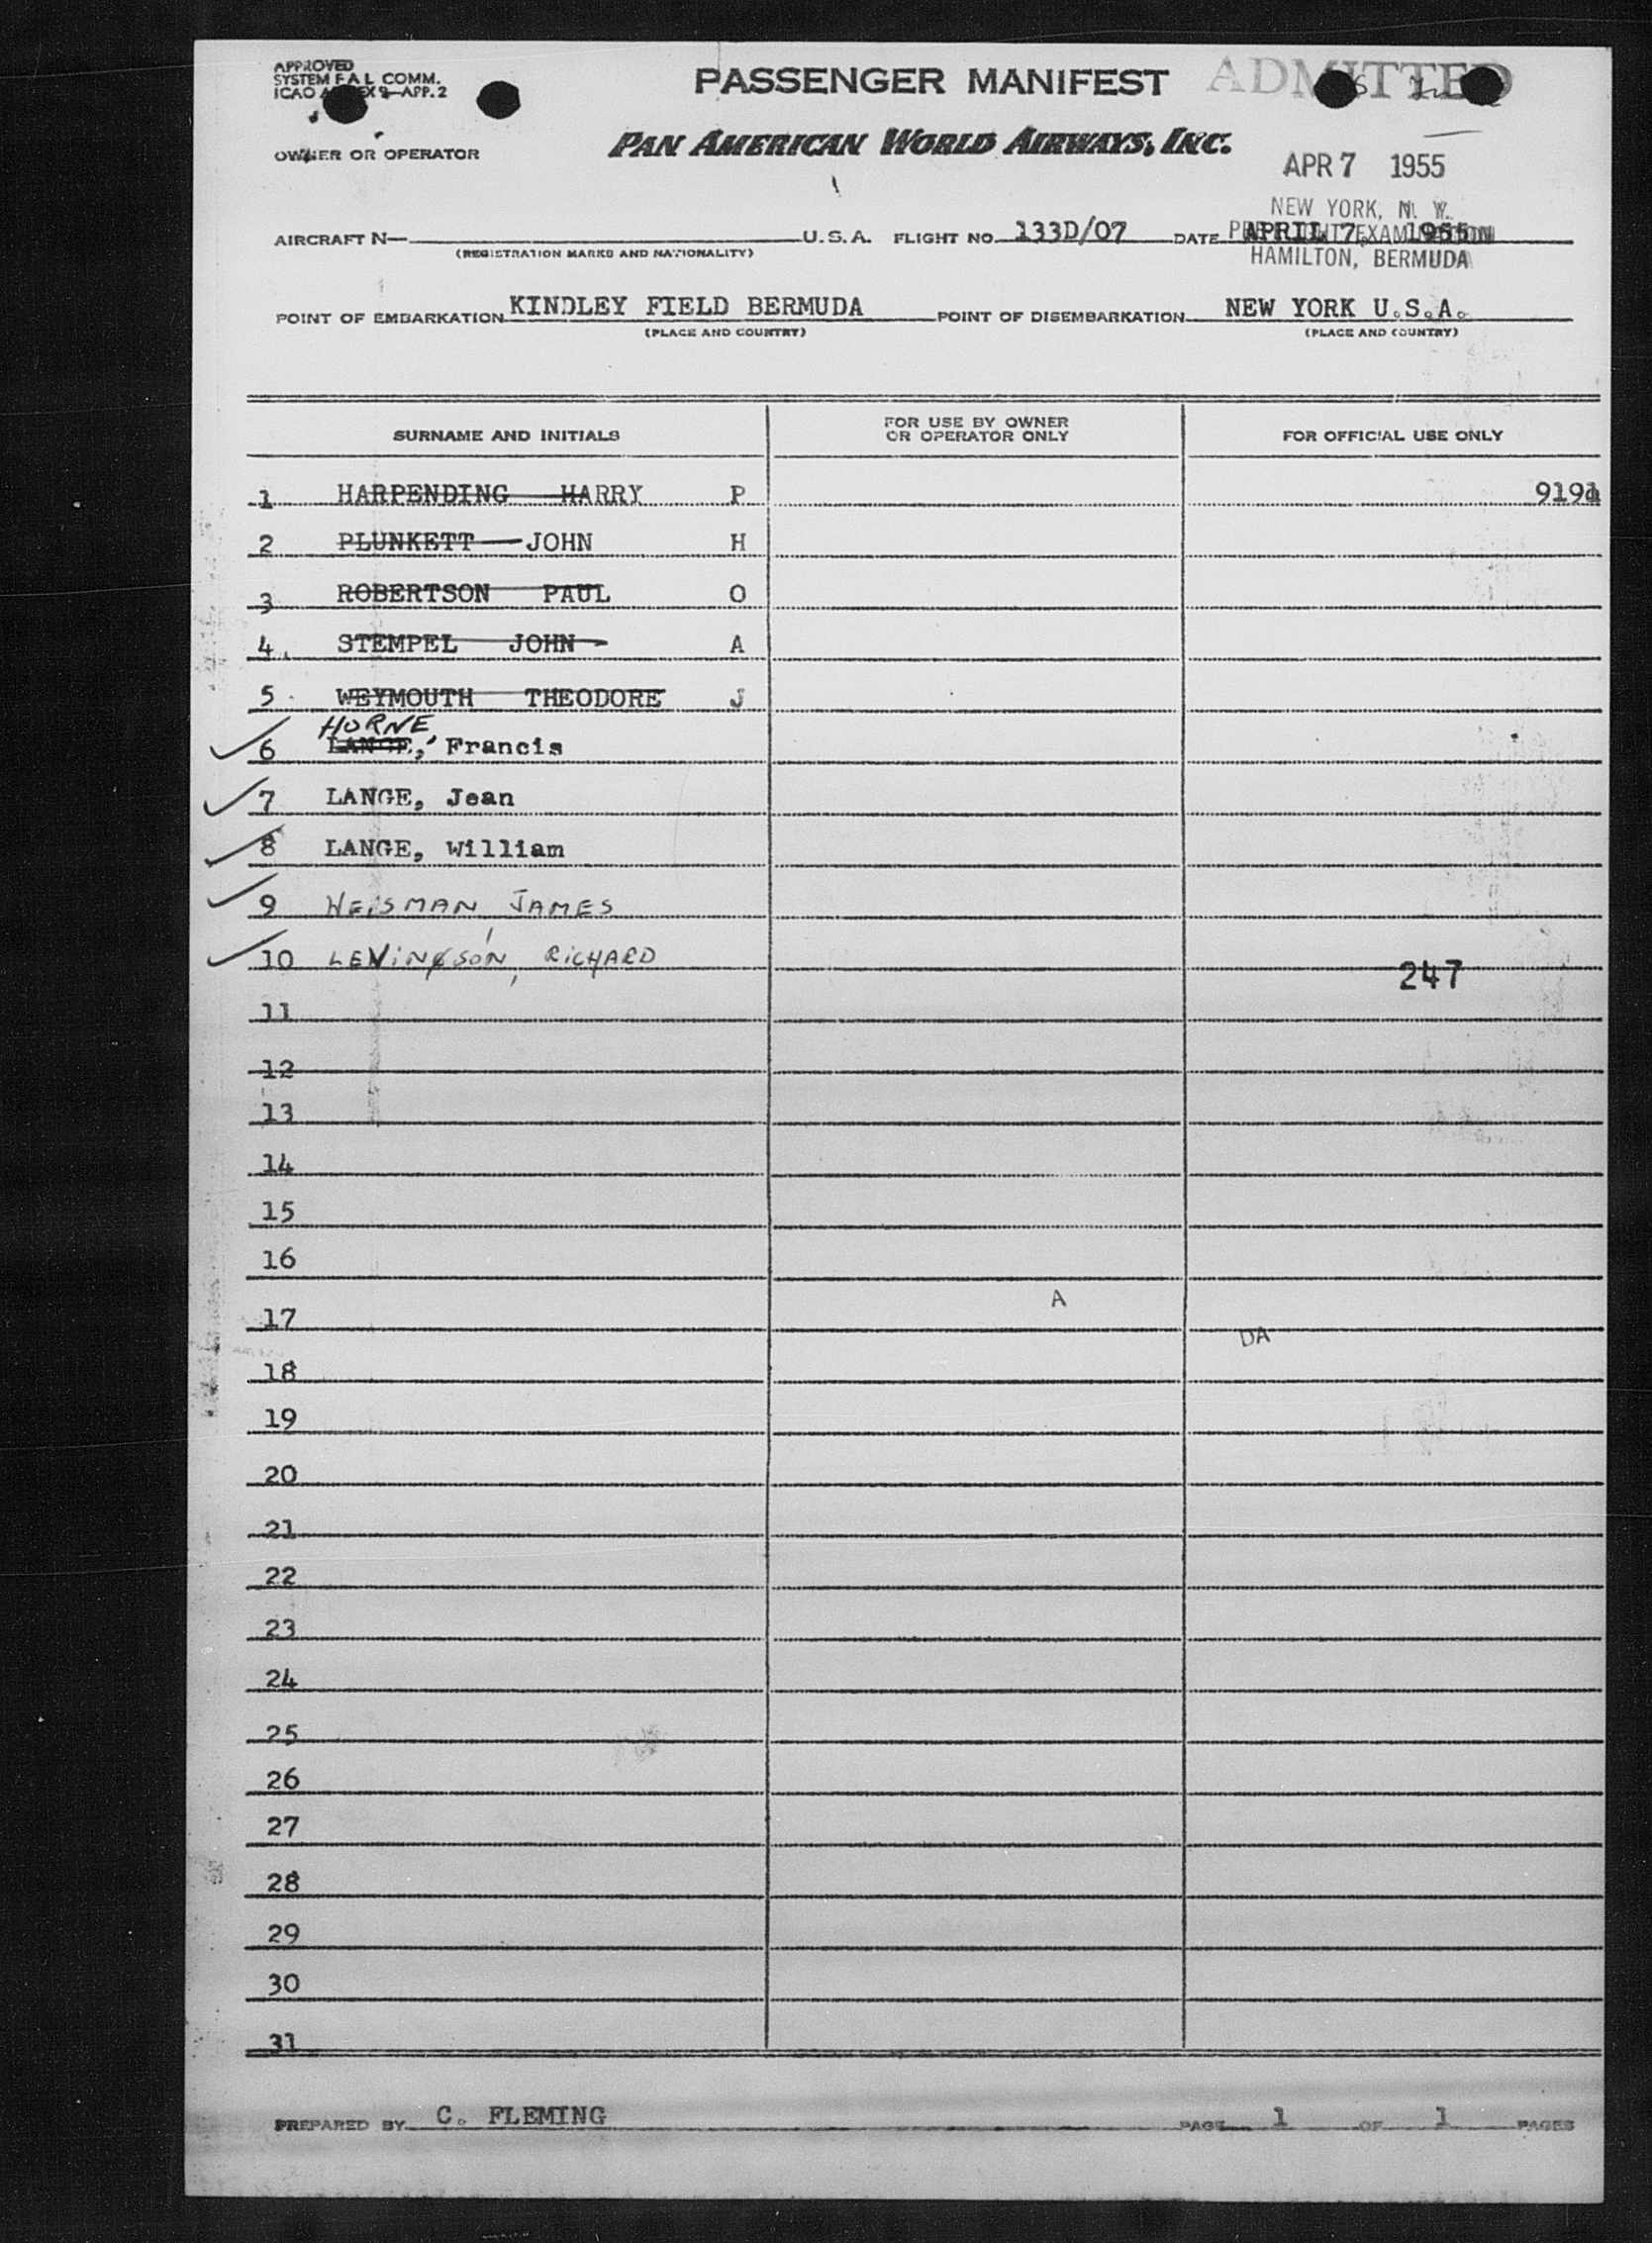 APPROVED
SYSTEM F A L COMM.
ICAO 9—APP. 2
PASSENGER MANIFEST
ADMITTED
OWNER OR OPERATOR
PAN AMERICAN WORLD AIRWAYS, INC.
APR 7 1955
NEW YORK, N. Y.
AIRCRAFT N— U.S.A. FLIGHT NO. 133D/07 DATE APRIL 7, 1955
(REGISTRATION MARKS AND NATIONALITY)
HAMILTON, BERMUDA
POINT OF EMBARKATION KINDLEY FIELD BERMUDA POINT OF DISEMBARKATION NEW YORK U.S.A.
(PLACE AND COUNTRY) (PLACE AND COUNTRY)
SURNAME AND INITIALS FOR USE BY OWNER OR OPERATOR ONLY FOR OFFICIAL USE ONLY
1 HARPENDING HARRY P 919
2 PLUNKETT JOHN H
3 ROBERTSON PAUL O
4 STEMPEL JOHN A
5 WEYMOUTH THEODORE J
HORNE
6 LANGE, Francis
7 LANGE, Jean
8 LANGE, William
9 WEISMAN, JAMES
10 LEVINSON, RICHARD
247
11
12
13
14
15
16
A
17
DA
18
19
20
21
22
23
24
25
26
27
28
29
30
31
PREPARED BY C. FLEMING PAGE 1 OF 1 PAGES